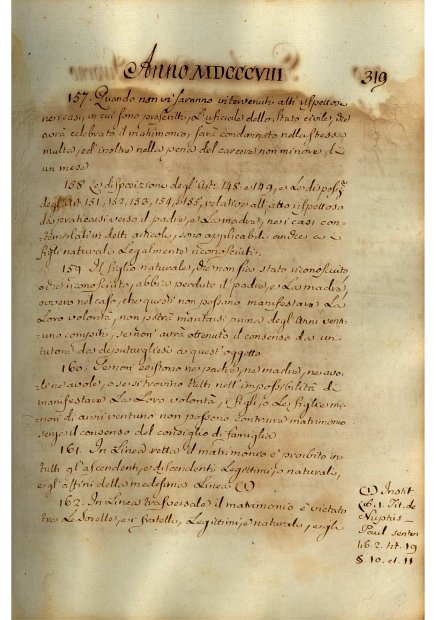 Anno MDCCCVIII 319
157. Quando non vi saranno intervenuti atti rispettosi
ne i casi, in cui sono prescritti, l'ufficiale dello stato civile, che
avrà celebrato il matrimonio, sarà condannato nella stessa
multa, ed inoltre nella pena del carcere non minore di
un mese
158 Le disposizione degl'Art. 148 e 149, e Le dispos.
degl'Art. 151, 152, 153, 154, e 155, relative all'atto rispettoso
da praticarsi verso il padre, e La madre, ne i casi con-
templati in detti articoli, sono applicabili anche a
figli naturali Legalmente riconosciuti.
159 Il figlio naturale, che non sia stato riconosciuto
o che riconosciuto, abbia perduto il padre, e La madre,
ovvero nel caso, che questi non possano manifestare La
Loro volontà, non potrà maritarsi prima degl'Anni vent-
uno compiti, se non avrà ottenuto il consenso da un
tutore da deputarglisi a quest'oggetto
160. Se non esistono ne padre, ne madre, ne avo-
li ne avole, o se si trovino tutti nell'impossibilità di
manifestare La Loro volontà, i figli, o Le figlie mi-
nori di anni ventuno non possono contrarre matrimonio
senza il consenso del consiglio di famiglia
161. In Linea retta il matrimonio è proibito in
tutti gl'ascendenti, e discendenti Legittimi, e naturali,
e gl'affini della medesima Linea (1)
162. In Linea trasversale il matrimonio è vietato
tra Le Sorelle, e i fratelli, Legittimi, e naturali, e gli
(1) Instit
lib. 1. Tit. de
Nuptiis
Paul senten
lib. 2. tit. 19
§. 10. et 11